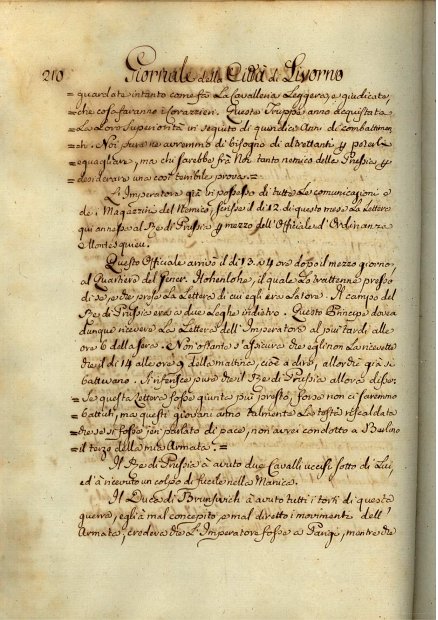 210 Giornale della Città di Livorno
= guardate intanto come fà la Cavalleria Leggera, e giudicate,
= che cosa faranno i Corazzieri. Queste Truppe anno acquistata
= la loro superiorità in seguito di quindici Anni di combattimen
= ti. Noi pure ne avremmo di bisogno di altrettanti p poterle
= eguagliare, ma chi sarebbe frà Noi tanto nemico della Prussia p
= desiderare una così terribile prova. =
L'Imperatore già in possesso di tutte le comunicazioni e
de' Magazzini del Nemico, scrisse il di 12 di questo mese la Lettera
qui annessa al Re di Prussia p mezzo dell'Offiziale d'Ordinanza
Montesquieu.
Questo Offiziale arrivò il dì 13 a 4 ore dopo il mezzo giorno,
al Quartiere del Gener. Hohenlohe, il quale lo trattenne presso
di se, e che prese la Lettera di cui egli era Latore. Il campo del
Re di Prussia era a due Leghe indietro. Questo Principe doveva
dunque ricevere la Lettera dell'Imperatore al più tardi alle
ore 6 della sera. Non ostante s'assicura che egli non la ricevette
che il di 14 alle ore 9 della mattina, cioè a dire, allorchè già si
battevano. Si riferisce pure che il Re di Prussia allora disse:
= Se questa Lettera fosse giunta più presto, forse non ci saremmo
= battuti, ma questi giovani anno talmente la testa riscaldata
= che se si fosse jeri parlato di pace, non avrei condotto a Berlino
= il terzo della mia Armata. =
Il Re di Prussia à avuto due Cavalli uccisi sotto di Lui,
ed à ricevuto un colpo di fucile nella Manica.
Il Duca di Brunswich à avuto tutti i torti di questa
guerra, egli à mal concepito, e mal diretto i movimenti dell'
Armata, credeva che l'Imperatore fosse a Parigi, mentre che